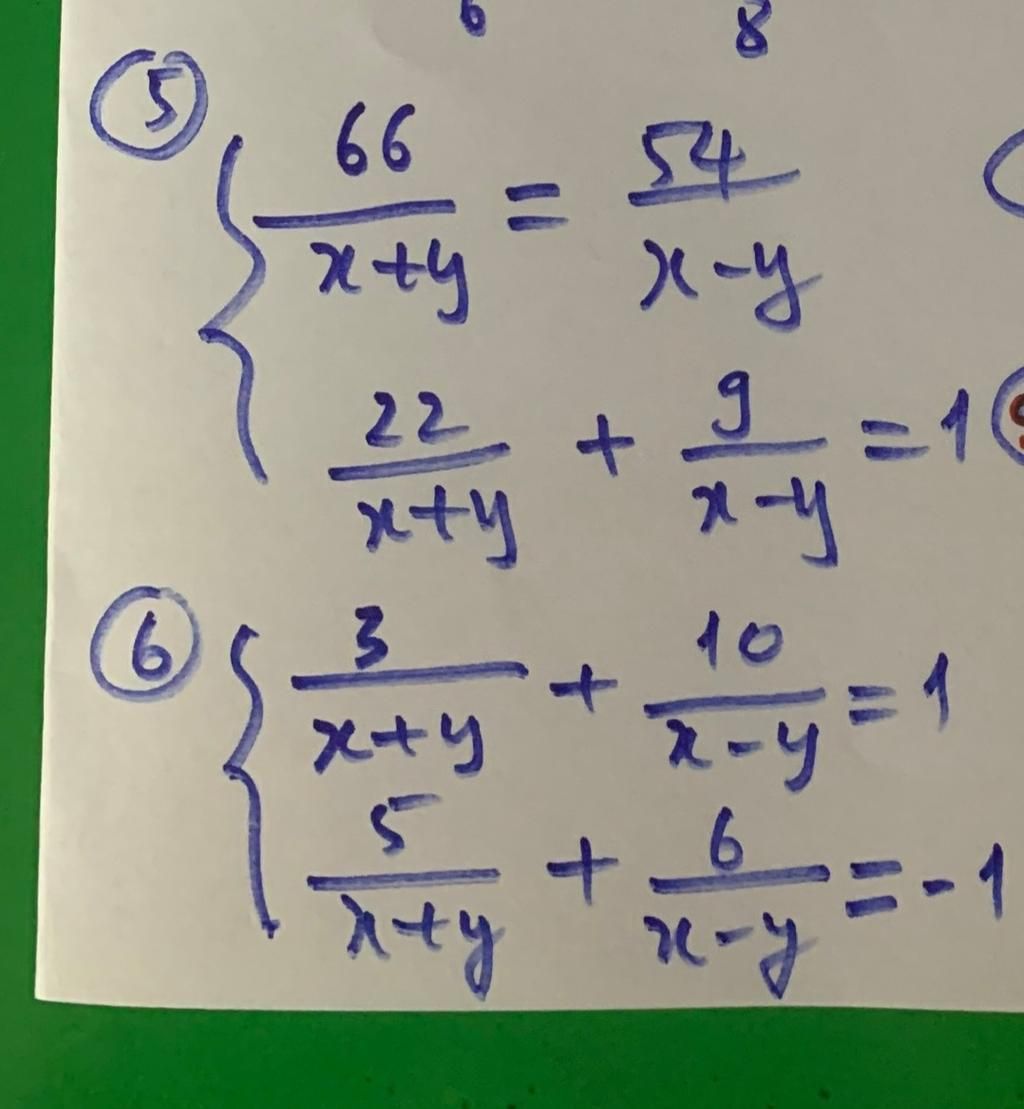 6 8
5
66/(x+y) = 54/(x-y)
22/(x+y) + 9/(x-y) = 1
6
3/(x+y) + 10/(x-y) = 1
5/(x+y) + 6/(x-y) = -1